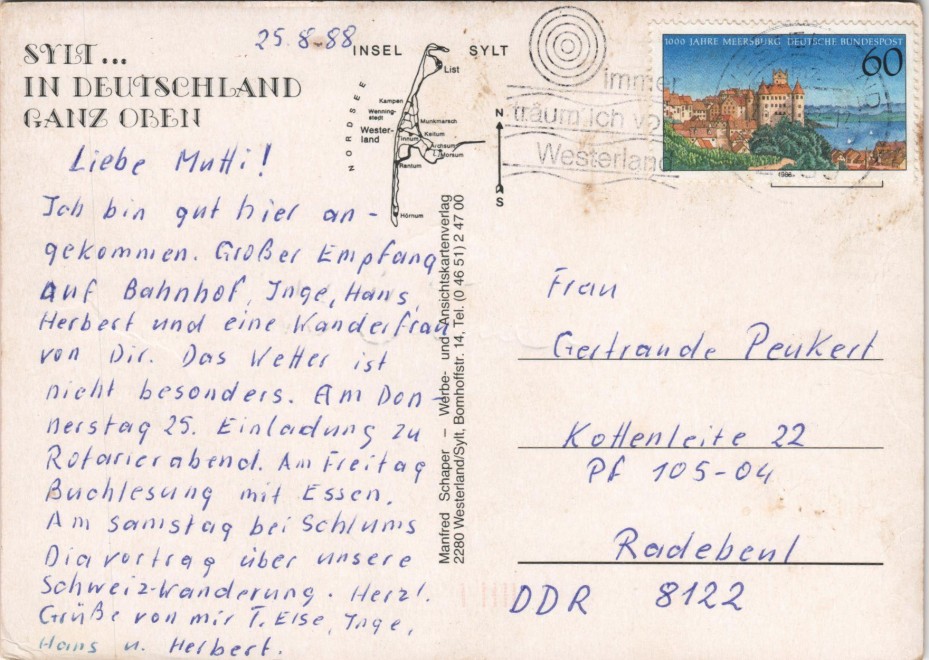 SYLT...
IN DEUTSCHLAND
GANZ OBEN
25.8-88
INSEL SYLT
List
NORDSEE
Kampen
Wenning-
stedt
Munkmarsch
Wester-
land
Keitum
Tinnum
Archsum
Morsum
Rantum
Hörnum
N
S
immer
träum ich vo
Westerland
1000 JAHRE MEERSBURG DEUTSCHE BUNDESPOST
60
1988
Liebe Mutti!
Ich bin gut hier an-
gekommen. Großer Empfang
auf Bahnhof, Inge, Hans,
Herbert und eine Wanderfrau
von Dir. Das Wetter ist
nicht besonders. Am Don-
nerstag 25. Einladung zu
Rotarierabend. Am Freitag
Buchlesung mit Essen.
Am Samstag bei Schlums
Diavortrag über unsere
Schweiz-Wanderung. Herzl.
Grüße von mir T. Else, Inge,
Hans u. Herbert.
Manfred Schaper – Werbe- und Ansichtskartenverlag
2280 Westerland/Sylt, Bomhoffstr. 14, Tel. (0 46 51) 2 47 00
Frau
Gertraude Peukert
Kottenleite 22
Pf 105-04
Radebeul
DDR 8122